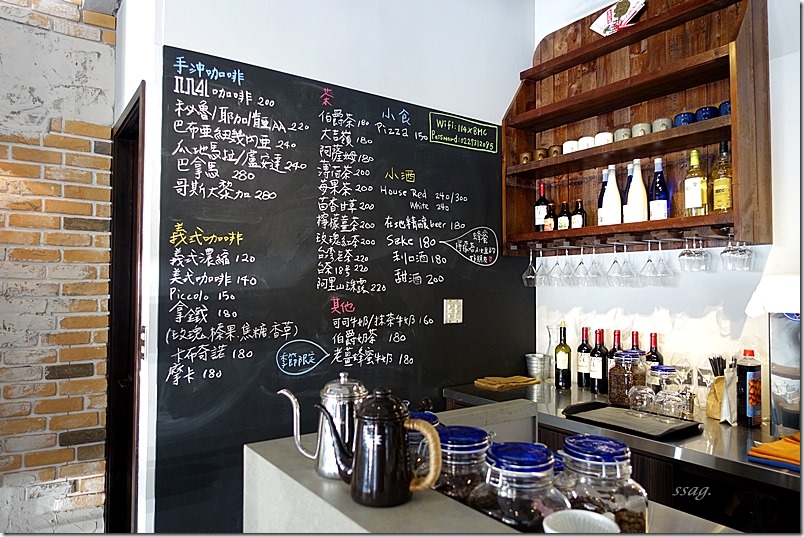 手沖咖啡
咖啡 200
秘魯/耶加/肯亞AA 220
巴布亞紐幾內亞 240
瓜地馬拉/盧安達 240
巴拿馬 280
哥斯大黎加 280
義式咖啡
義式濃縮 120
美式咖啡 140
Piccolo 150
拿鐵 180
(玫瑰, 榛果, 焦糖, 香草)
卡布奇諾 180
摩卡 180
茶
伯爵茶 180
大吉嶺 180
阿薩姆 180
薄荷茶 200
莓果茶 200
茴香甘草 200
檸檬薑茶 200
玫瑰紅茶 200
茶 220
台茶18号 220
阿里山 220
其他
可可牛奶/抹茶牛奶 160
伯爵奶茶 180
老薑蜂蜜牛奶 180
季節限定
小食
Pizza 150
小酒
House Red 240/300
White 240
在地精釀beer 180
Sake 180
利口酒 180
甜酒 200
蜂蜜
Wifi: 114X8MC
Password: 0229312085
ssag.